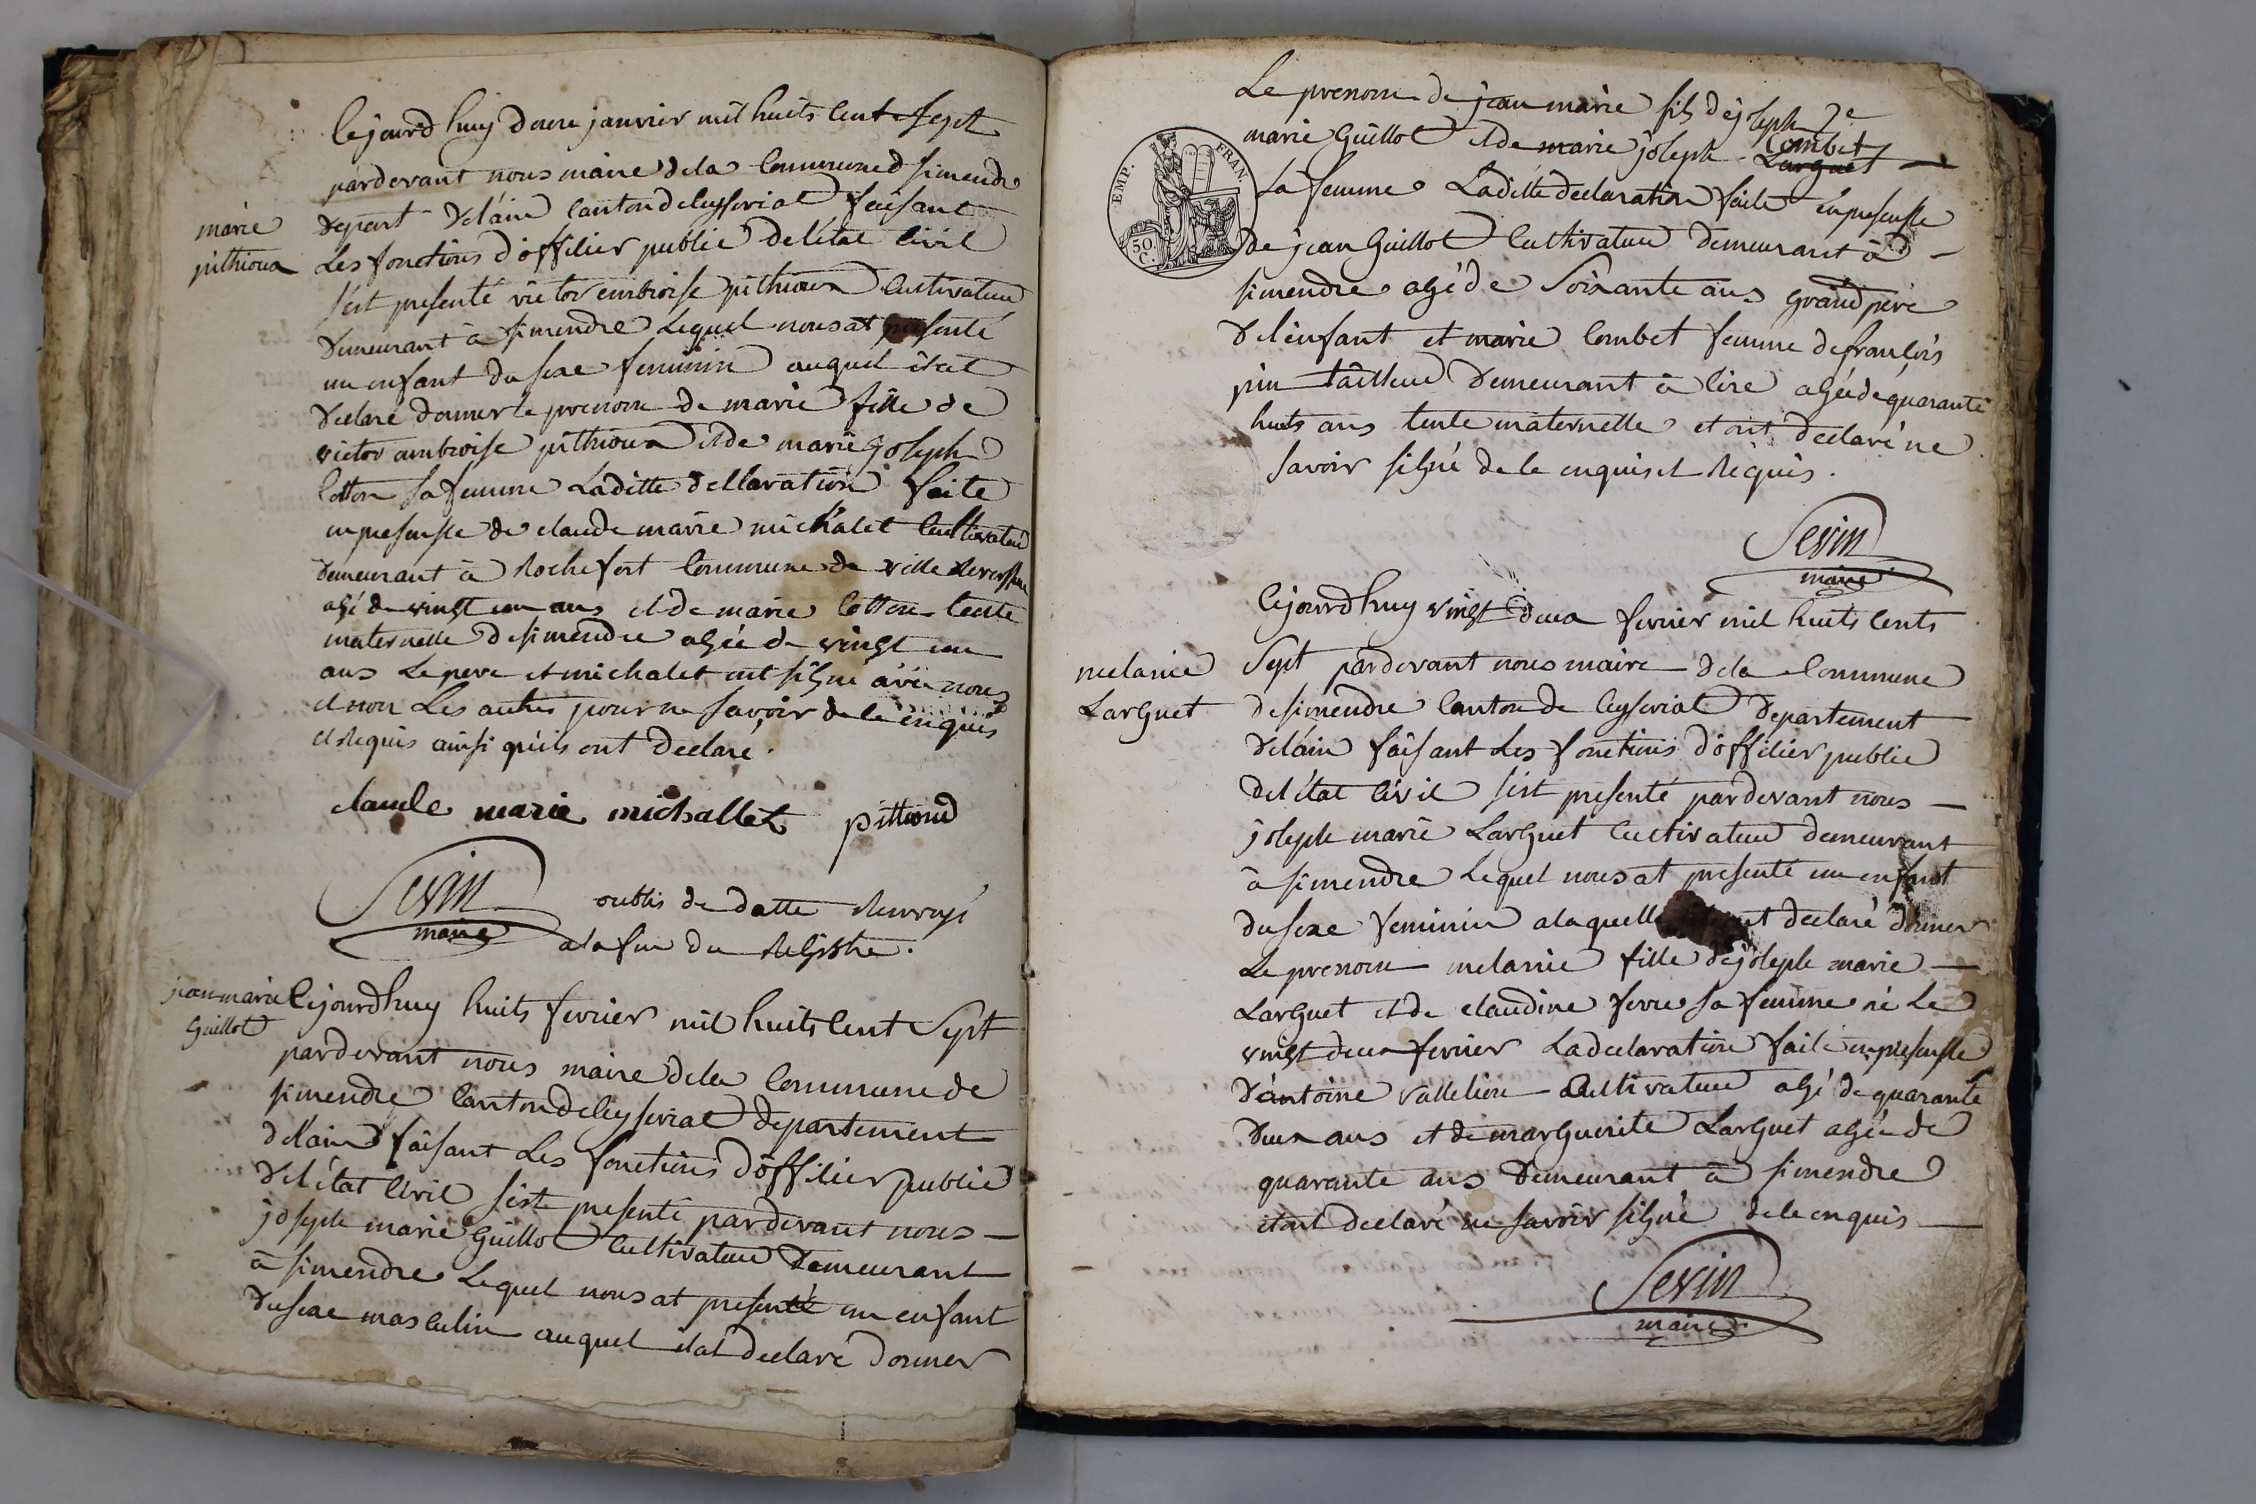 Cejourd huy douze janvier mil huits cent sept
pardevant nous maire dela Commune d simendre
depart delain canton de Ceyseriat faisant
marie
pithioux
Les fonctions d'officier public deletat Civil
sest presenté victor embroise pithioux Cultivateur
demeurant à simendre Lequel nous at presenté
un enfant du sexe feminin auquel il at
declaré donner le prenom de marie fille de
victor ambroise pithioux et de marie joseph
Cotton sa femme Laditte declaration faite
en presensse de claude marie michalet Cultivateur
demeurant à Rochefort Commune de ville
agé de vingt un ans et de marie Cotton tente
maternelle de simendre agée de vingt un
ans Le pere et michalet ont signé avec nous
et non Les autres pour ne savoir de le enquis
et Requis ainsi qu'ils ont declaré.
claude marie michallet pittioud
Sevin
maire
oublis de datte Renvoyé
a la fin du Registre.
jean marie
Guillot
Cejourdhuy huits fevrier mil huits Cent Sept
pardevant nous maire dela Commune de
simendre Canton de Ceyseriat departement
delain faisant Les fonctions d'officier public
deletat Civil sest presenté pardevant nous —
joseph marie Guillot Cultivateur demeurant
à simendre Lequel nous at presenté un enfant
du sexe masculin auquel il at declaré donner
Le prenom de jean marie fils de joseph
marie Guillot et de marie joseph Larguet
Combet
EMP. FRAN.
50 C.
La femme Laditte declaration faite en presensse
de jean Guillot Cultivateur demeurant à —
simendre agé de Soixante ans grand pere
de lenfant et marie Combet femme de francois
tailleur demeurant à Cire agée de quarante
huits ans tente maternelle et ont declaré ne
savoir signé de le enquis et Requis.
Sevin
maire
Cejourdhuy vingt deux fevrier mil huits Cents
melanie
Larguet
Sept pardevant nous maire dela Commune
de simendre Canton de Ceyseriat departement
delain faisant Les fonctions d'officier public
deletat Civil sest presenté pardevant nous —
joseph marie Larguet Cultivateur demeurant
à simendre Lequel nous at presenté un enfant
du sexe feminin a laquelle declaré donner
Le prenom melanie fille de joseph marie —
Larguet et de claudine ferre sa femme né Le
vingt deux fevrier La declaration faite en presensse
d'antoine Cultivateur agé de quarante
deux ans et de marguerite Larguet agée de
quarante ans demeurant à simendre
et ont declaré ne savoir signé de le enquis —
Sevin
maire